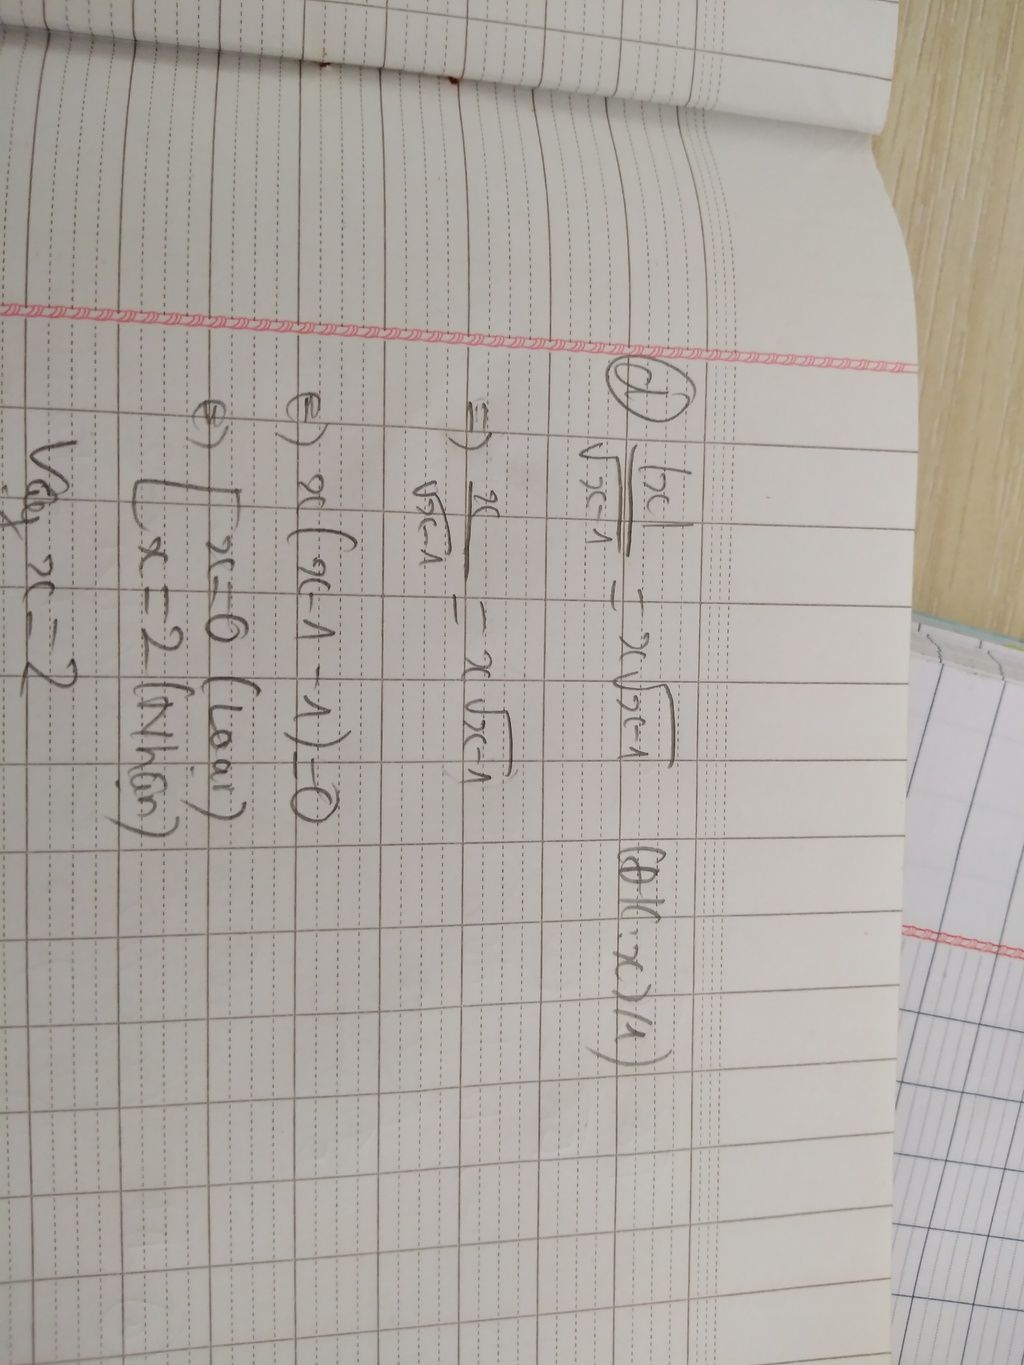 d) |x|/√(x-1) = x√(x-1) (ĐK: x>1)
=> x/√(x-1) = x√(x-1)
(=) x(x-1-1)=0
(=) [x=0 (Loại)
[x=2 (Nhận)
Vậy x=2